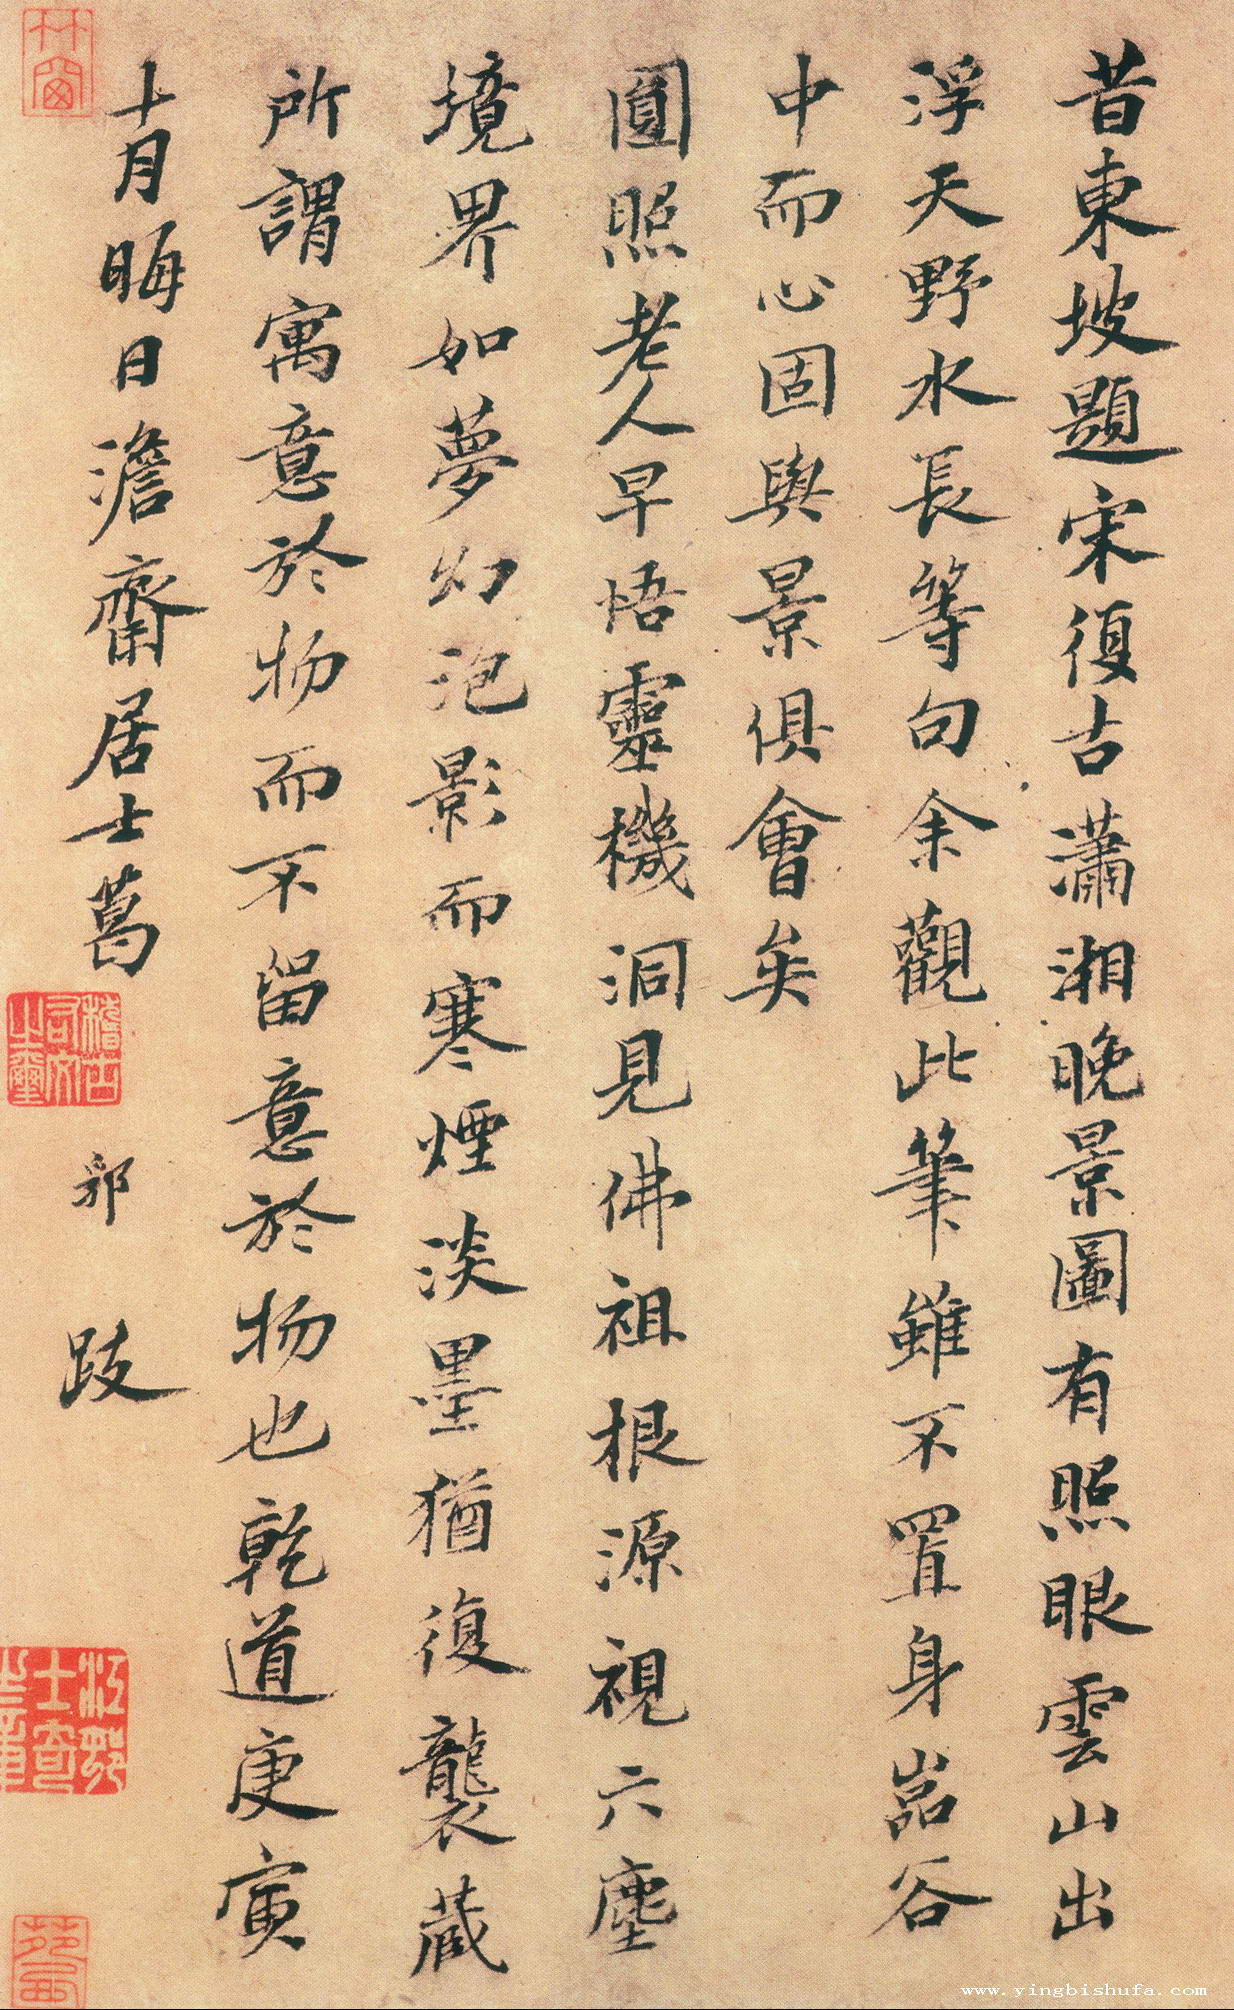 昔東坡題宋復古瀟湘晚景圖有照眼雲山出
浮天野水長等句余觀此筆雖不置身嵒谷
中而心固與景俱會矣
圓照老人早悟靈機洞見佛祖根源視六塵
境界如夢幻泡影而寒煙淡墨猶復襲藏
所謂寓意於物而不留意於物也乾道庚寅
十月晦日澹齋居士葛
郛
跋
www.yingbishufa.com